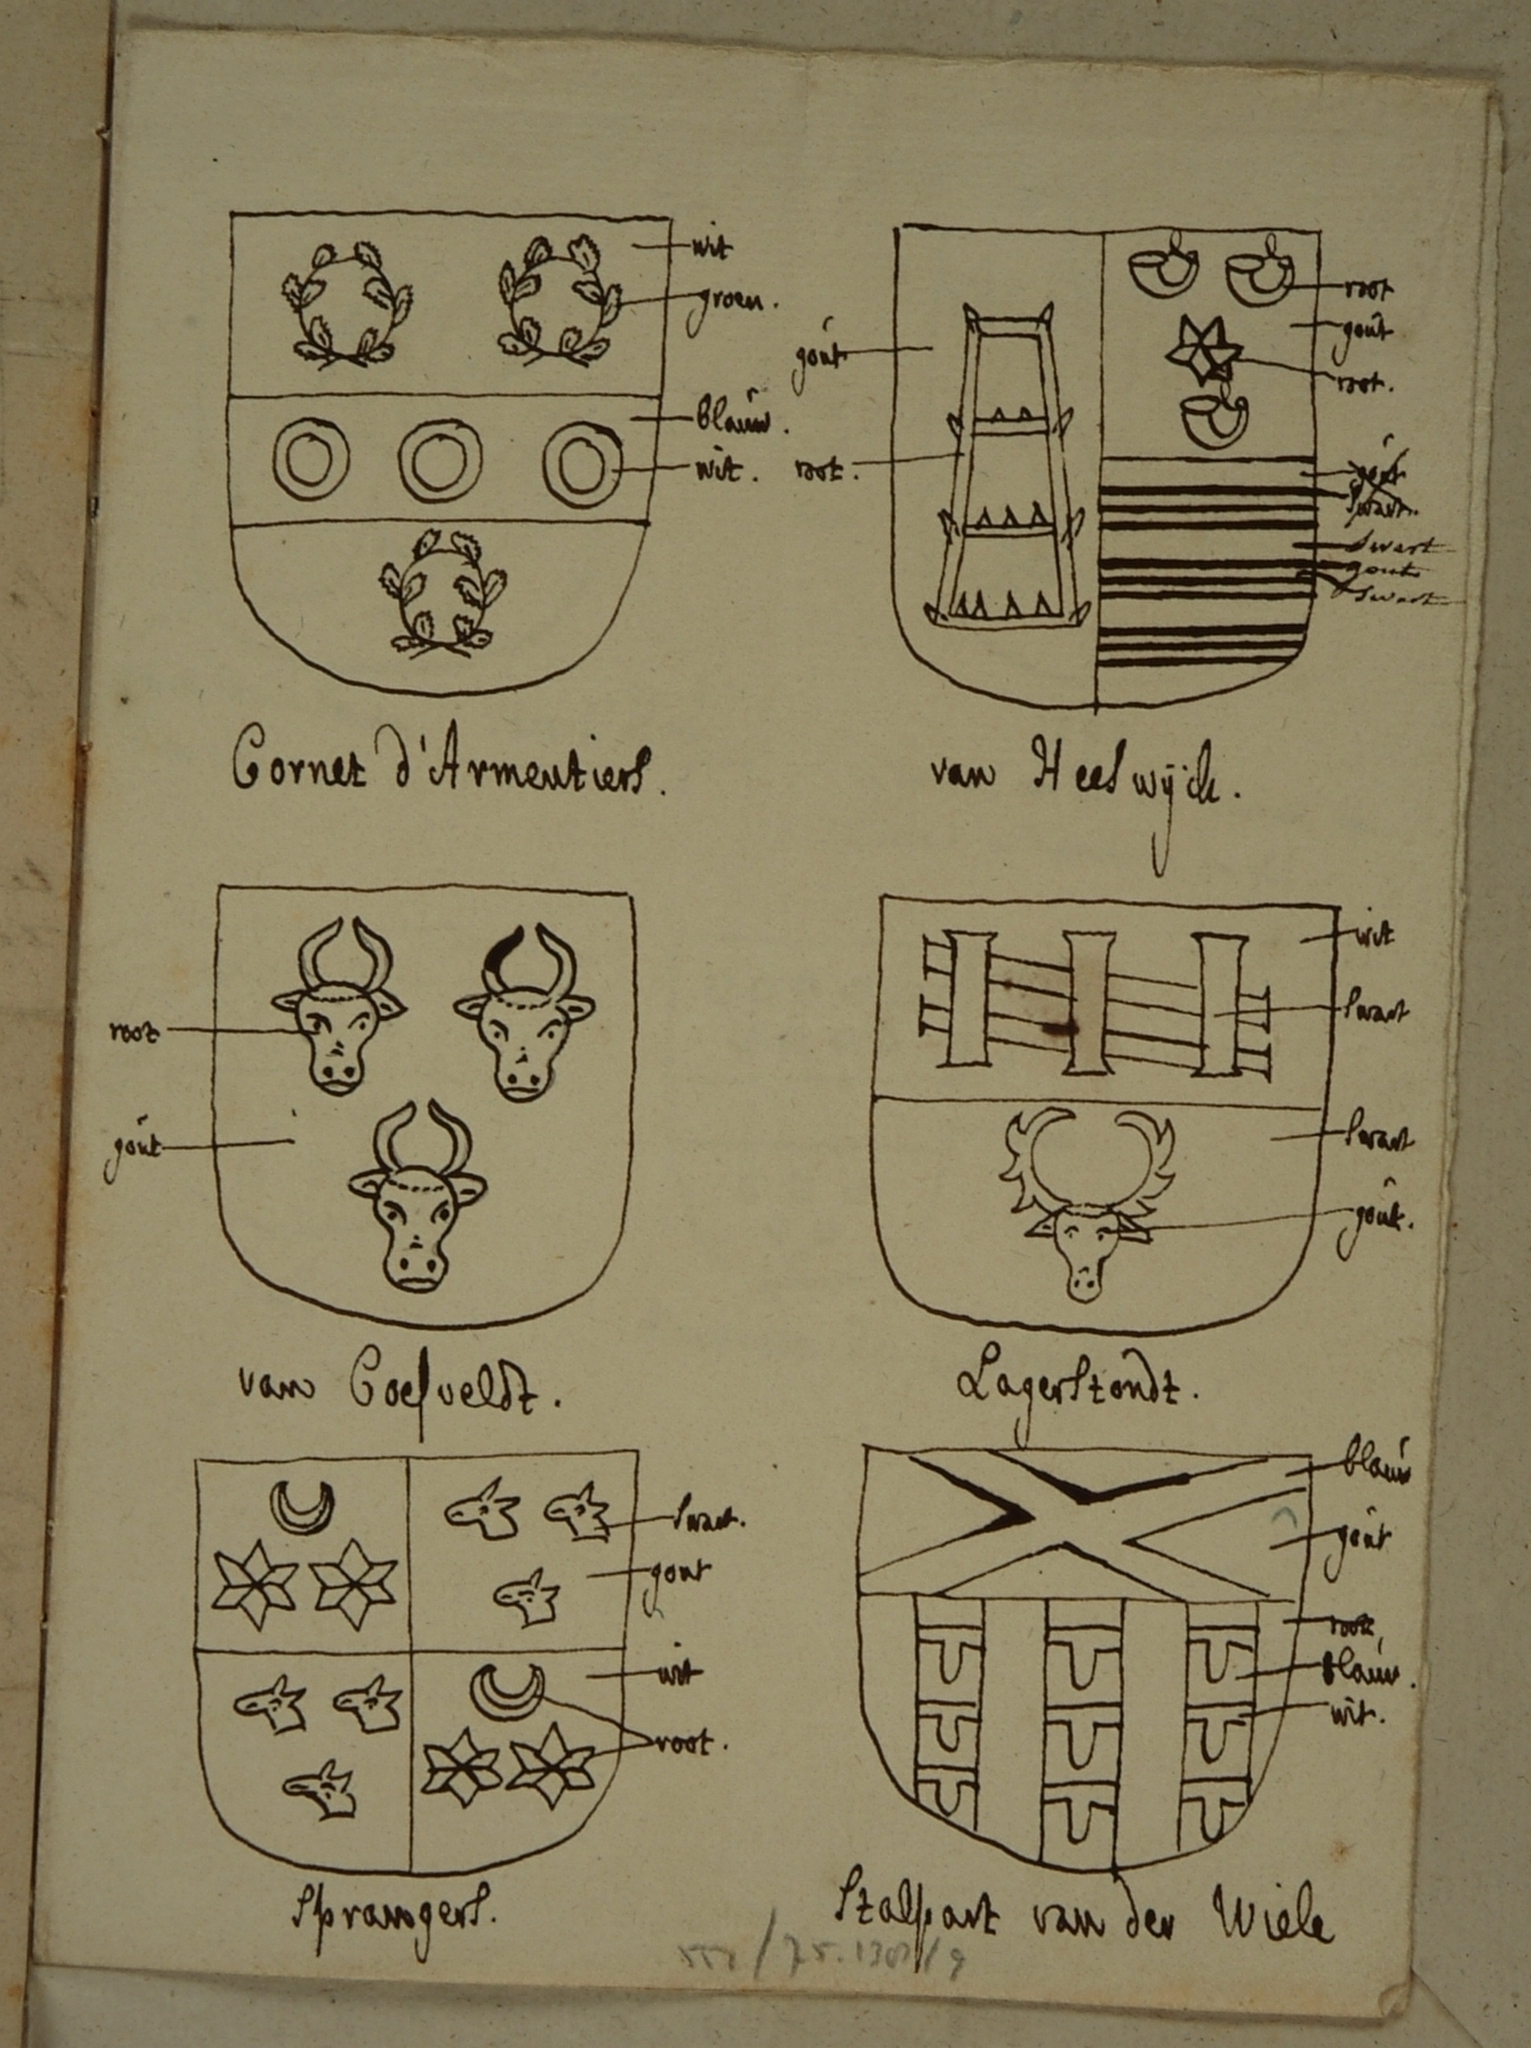 wit
groen.
blauw.
wit.
Cornet d'Armentiers.
goút
root.
root
goút
root.
goút
swart.
swart
gout
swart
van Heeswÿck.
root
goút
van Coesveldt.
wit
swart
swart
goút.
Lagerstondt.
swart.
gout
wit
root.
Sprangers.
blauw
goút
root
blauw.
wit.
Stalpart van der Wiele